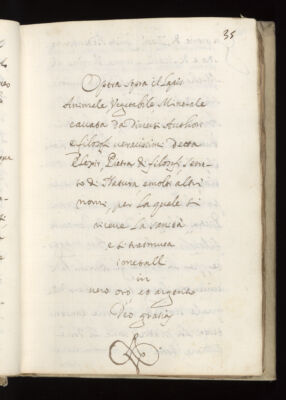 35
Opera sopra il Lapis
Animale Vegetabile Minerale
cavata da Diversi Authori
e filosofi veracissimi detta
Elixir, Pietra di filosofi, secre-
to di Natura, e molti altri
nomi, per la quale si
riceve la sanità
e si trasmuta
i metalli
in
vero oro et argento
Deo gratias